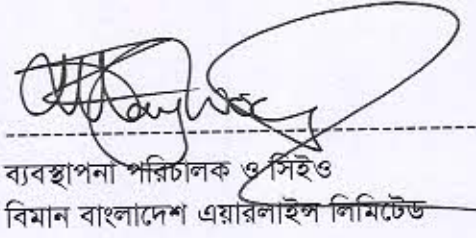 ব্যবস্থাপনা পরিচালক ও সিইও
বিমান বাংলাদেশ এয়ারলাইন্স লিমিটেড